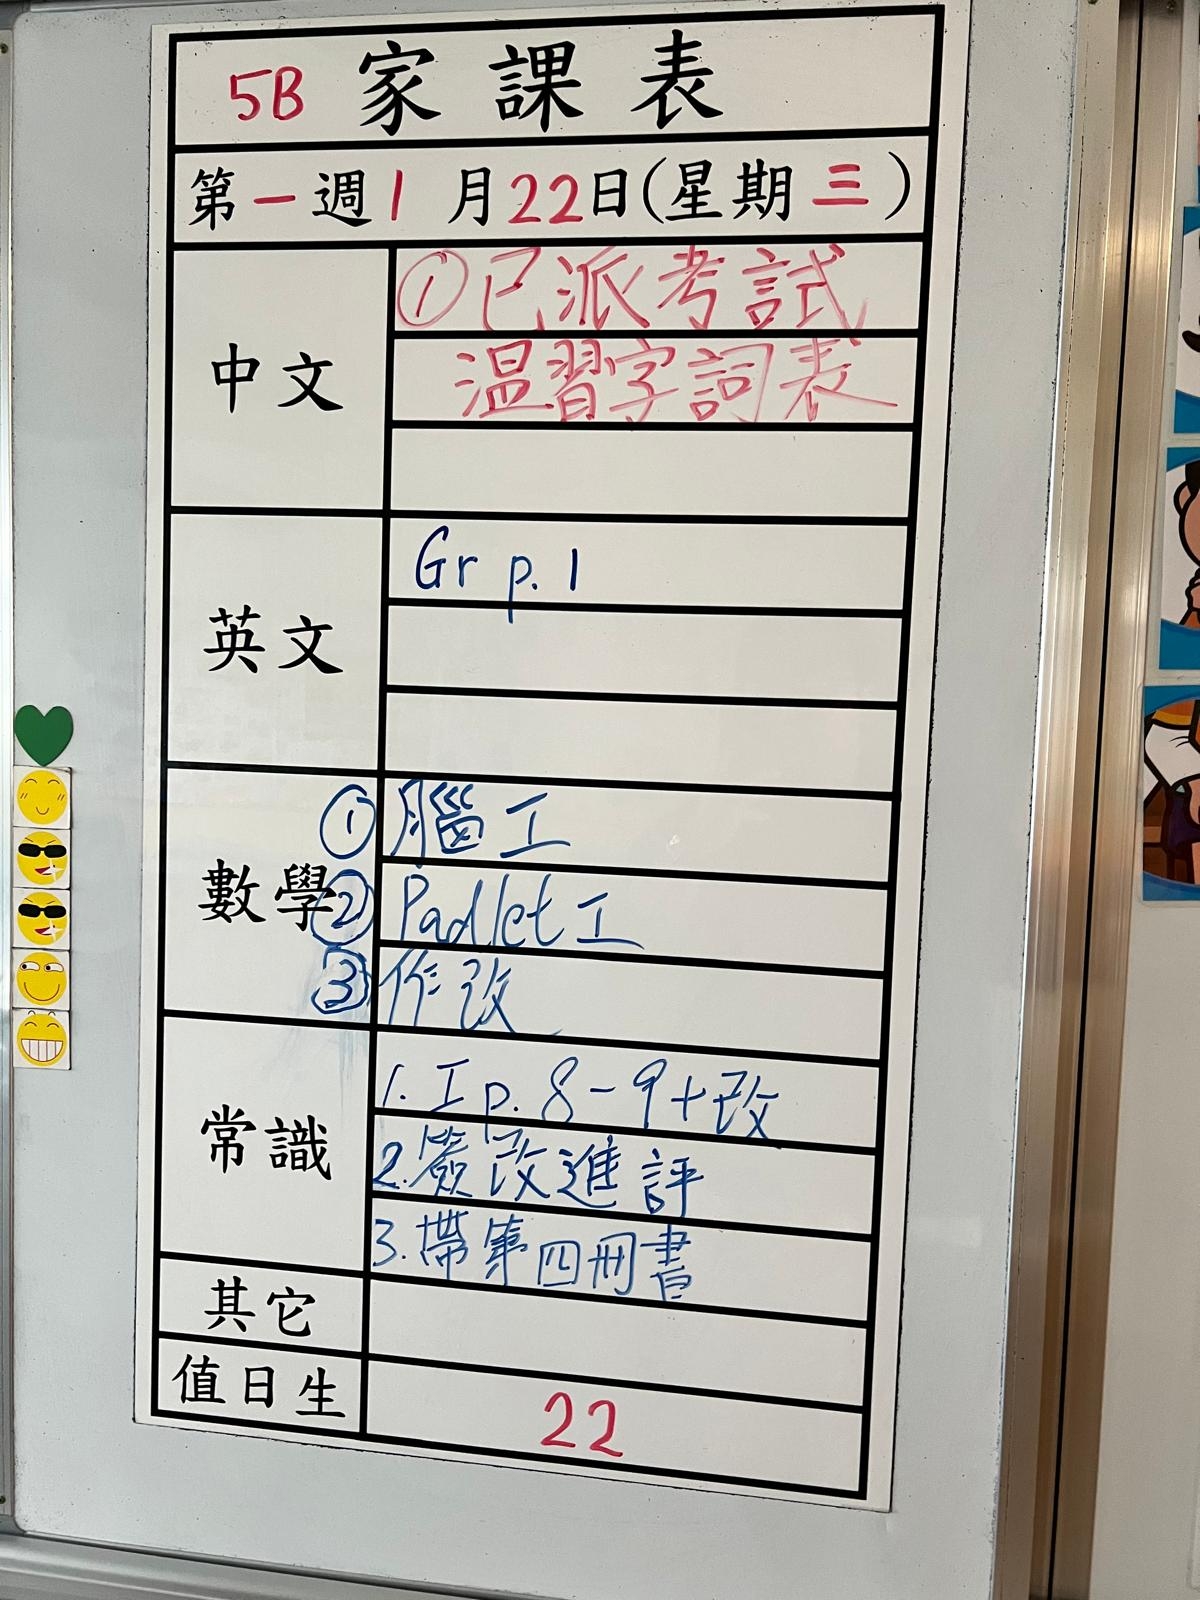 5B 家課表
第一週1月22日(星期三)
中文
①已派考試
温習字詞表
英文
Gr p.1
數學
①腦工
②Padlet工
③作改
常識
1.工p.8-9+改
2.簽改進評
3.帶第四冊書
其它
值日生
22